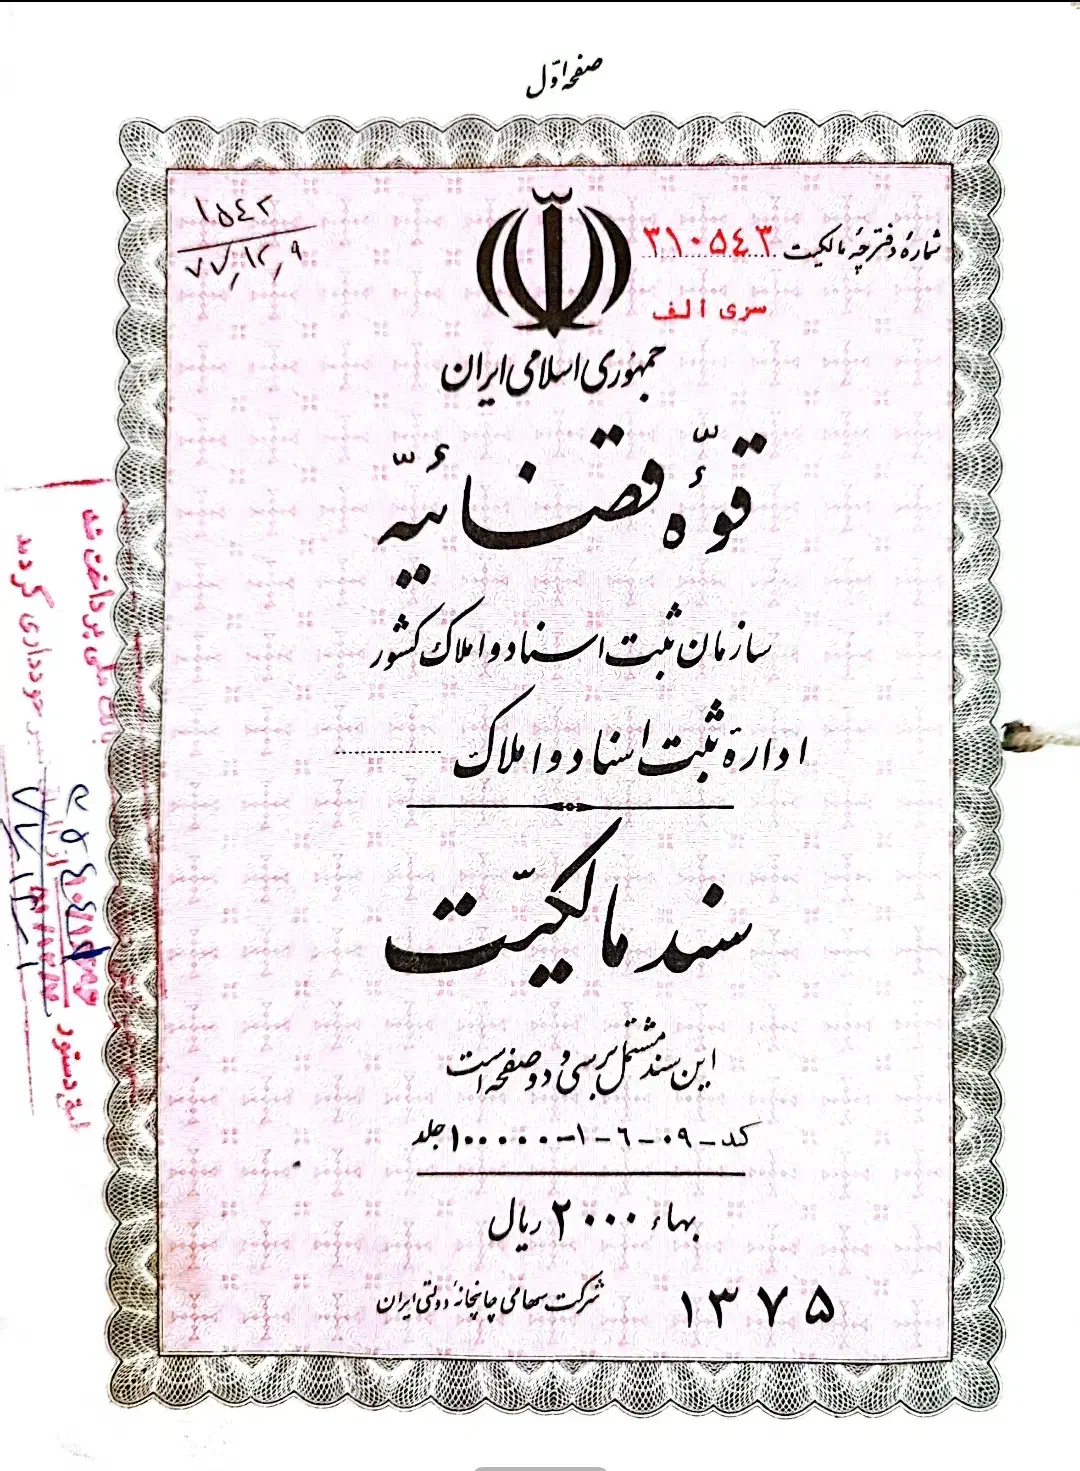 صفحه اوّل
شمارهٔ دفترچهٔ مالکیت ۳۱۰۵۴۳
سری الف
۱۵۴۲
۷۷٫۱۲٫۹
جمهوری اسلامی ایران
قوّهٔ قضائیّه
سازمان ثبت اسناد و املاک کشور
ادارهٔ ثبت اسناد و املاک
سند مالکیّت
این سند مشتمل بر سی و دو صفحه است
کد – ۰۹ – ۶ – ۱ – ۱۰۰۰۰۰ جلد
بهاء ۲۰۰۰ ریال
۱۳۷۵
شرکت سهامی چاپخانهٔ دولتی ایران
ملی پرداخت شد
خودداری گردید
دستور